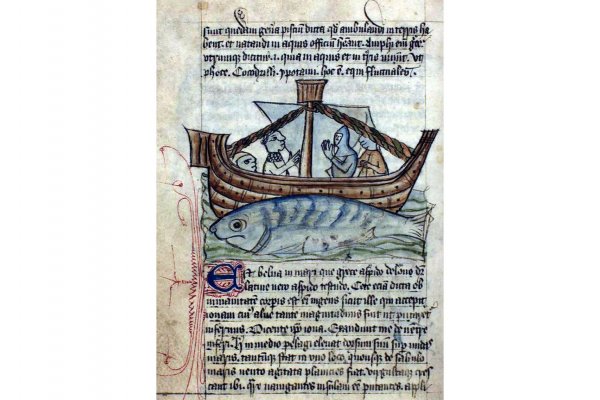 sunt quedam gen̄a pisciū dicta qd̄ ambulandi in terris ha
bent. et natandi in aquis officiū h̄eant. Amphi em̄ gre
dicitur .i. quia in aquis et in t̄ris uiuūt. ut
phoce. Cocodrilli. ypotami. hoc ē. equi fluctuales.
Est belua in mari que grece aspido delone dr̄
latine uero aspido testudo. Cete eciā dicta ob
inmanitatē corp̄is est em̄ ingens sicut ille qui accepit
ionam cui᷒ tante magnitudinis fuit ut putaret᷒
infernus. Dicente ip̄o iona. Exaudiuit me de uentre
inferi. in medio pelagi eleuat dorsum suū sup̄ undas
maris. stat in uno loco. quousqꝫ de sabulo
maris uento agitata planicies fiat. uirgultaqꝫ cres
cant ibi. nauigantes insulam eē putantes. apli